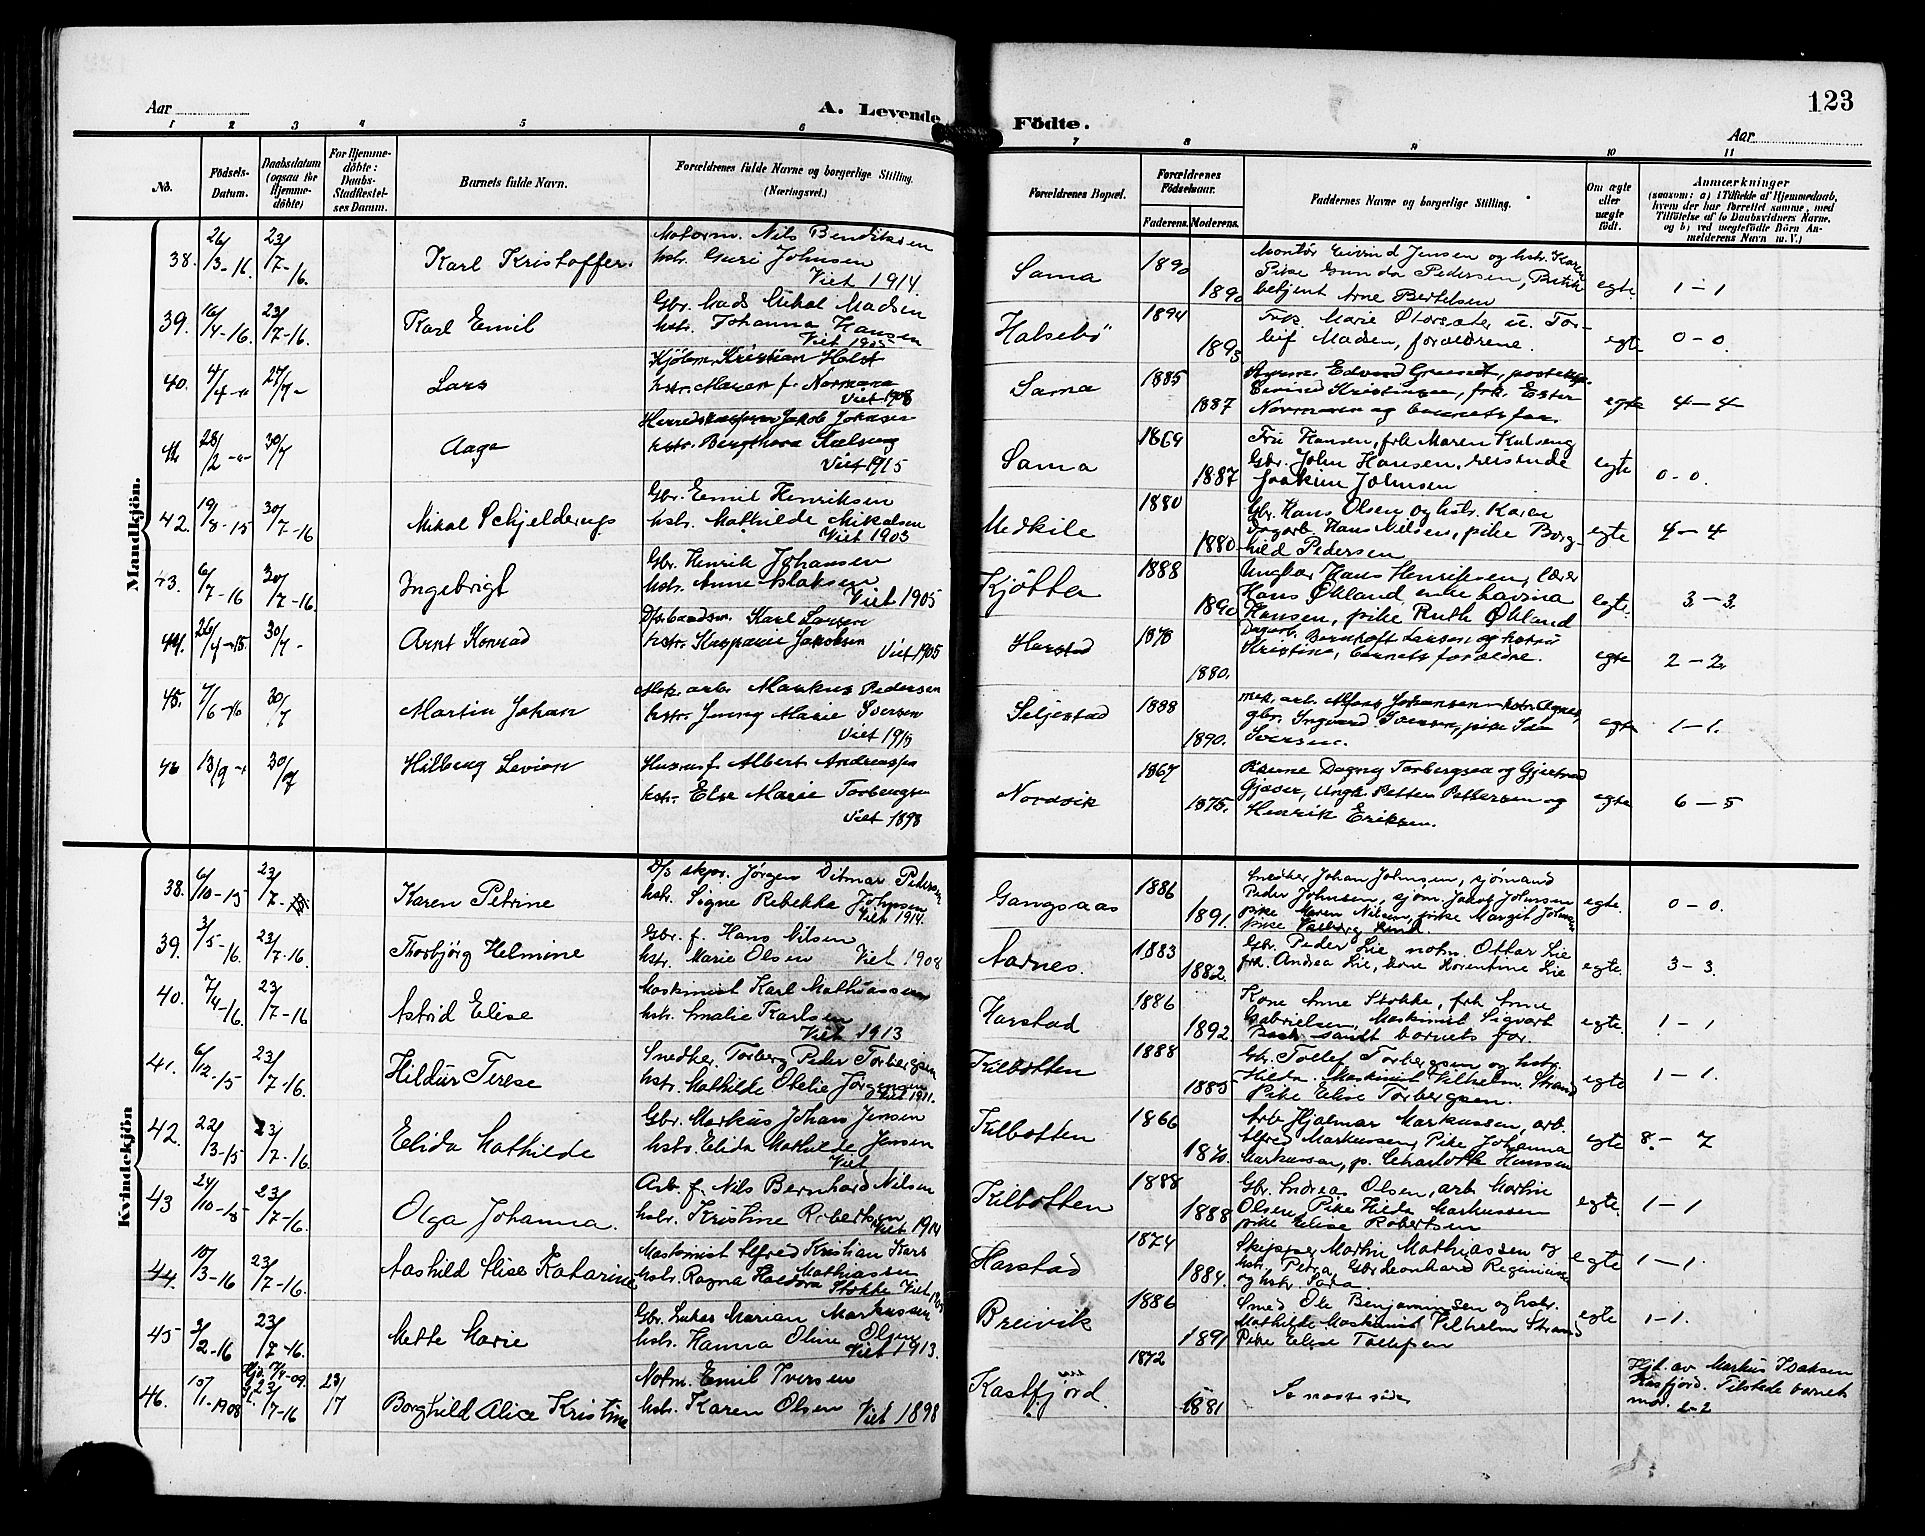 Aar
A. Levende
Födte.
123
Aar
1 2 3 4 5 6 7 8 9 10 11
No.
Födsels-
Datum.
Daabsdatum
(ogsaa for
Hjemme-
döbte)
For Hjemme-
döbte:
Daabs-
Stadfæstel-
ses Datum.
Barnets fulde Navn.
Forældrenes fulde Navne og borgerlige Stilling.
(Næringsvei.)
Forældrenes Bopæl.
Forældrenes
Födselsaar.
Faderens. Moderens.
Faddernes Navne og borgerlige Stilling.
Om ægte
eller
uægte
født.
Anmærkninger
(saasom: a) i Tilfælde af Hjemmedaab,
hvem der har forrettet samme, med
Tilføielse af to Daabsvidners Navne,
og b) ved uægtefødte Börn An-
melderens Navn m. V.)
Mandkjön.
38. 26/3-16. 23/7-16. Karl Kristoffer.
Motorm. Nils Bendiksen
hstr. Guri Johnsen
Viet 1914.
Sama 1890 1890
Montør Eivind Jensen og hstr. Karen
Pike Gunda Pedersen, Butik
betjent Arne Bertelsen
egte. 1-1
39. 16/4-16. 23/7-16. Karl Emil
Gbr. Mads Mikal Madsen
hstr. Johanna Hansen
Viet 1905
Halsebø 1894 1893
Frk. Marie Øversæter u. Tor-
leif Madsen, forældrene.
egt. 0-0.
40. 4/4 27/7- Lars
Kjøbm. Kristian Holst
hstr. Maren f. Normann
Viet 1908
Sama 1885 1887
Normann og barnets far
egte 4-4
41. 28/2 30/7 Aage
Johnsen
hstr. Bergthora
Viet 1915
Sama 1869 1887
Fru Hansen, frk Maren
Gbr. John Hansen, reisende
Joakim Johnsen
egte 0-0.
42. 19/8-15 30/7-16 Mikal Schjelderup
Gbr. Emil Henriksen
hstr. Mathilde Mikalsen
Viet 1903
Medkile 1880 1880
Gbr. Hans Olsen og hstr. Karen
Dagarb. Hans Nilsen, pike Borg-
hild Pedersen
egte 4-4
43. 6/7-16 30/7-16. Ingebrigt
Gbr. Henrik Johansen
hstr. Anne Aslaksen
Viet 1905
Kjøtta 1888 1890
Ungkar Hans Henriksen, lærer
Hans Økland, enke Lavina
Hansen, pike Ruth Økland
egte. 3-3.
44. 26/4-15. 30/7- Arnt Konrad
Karl Larsen
hstr. Kaspara Jakobsen Viet 1905
Harstad 1878 1880.
Dagarb. Bernhoft Larsen og hstru
Kristine, barnets forældre.
egte 2-2
45. 7/6-16 30/7 Martin Johan
Mek. arb. Markus Pedersen
hstr. Jenny Marie Iversen
Viet 1915
Seljestad 1888 1890.
mek. arb. Alfons Johansen hstr. Agnes,
gbr. Ingvard Iversen, pike Ida
Iversen.
egte 1-1.
46 13/9 30/7 Hilberg Levion
Husm.f. Albert Andreassen
hstr. Else Marie Torbergsen
Viet 1898
Nordvik 1867 1875.
Pikerne Dagny Torbergsen og Gjertrud
Gjæver, Ungk. Petter Pettersen og
Henrik Eriksen.
egte 6-5
Kvindekjön
38. 6/10-15 23/7- Karen Petrine
D/S skpr. Jørgen Ditmar Pedersen
hstr. Signe Rebekka Johnsen
Viet 1914.
Gangsaas 1886 1891.
Snedker Johan Johnsen, sjømand
Peder Johnsen, sjøm. Jakob Johnsen
pike Maren Nilsen, pike Margit Johnsen
pike Valborg
egte. 0-0.
39. 3/5-16. 23/7-16. Thorbjörg Helmine
Gbr. f. Hans Nilsen
hstr. Marie Olsen Viet 1908
Aarnes. 1883 1882.
Gbr. Peder Lie notm. Ottar Lie
frk. Andrea Lie, kone Horentine Lie
egte. 3-3.
40. 7/4-16. 23/7-16 Astrid Elise
Maskinist Karl Mathiassen
hstr. Amalie Karlsen
Viet 1913
Harstad 1886 1892
Kone Anne Stokke, frk Anne
Gabrielsen, Maskinist Sigvart
samt barnets far.
egte. 1-1
41. 6/12-15 23/7-16. Hildur Terese
Snedker Torberg Peder Torbergsen
hstr. Mathilde Otelie Jørgensen
Viet 1911.
Kilbotten 1888 1885
Gbr. Tollef Torbergsen og hstr.
Hilda. Maskinist Vilhelm Strand
Pike Elise Torbergsen.
egte 1-1.
42. 22/3-15 23/7-16. Elida Mathilde
Gbr. Markus Johans Jensen
hstr. Elida Mathilde Jensen
Viet
Kilbotten 1866 1870.
Arb Hjalmar Markussen, arb.
Alfred Markussen, Pike Johanna
Markussen, p. Charlotte Hanssen
egte 8-7
43 24/10-15 23/7-16. Olga Johanna.
Arb. f. Nils Bernhard Nilsen
hstr. Kristine Robertsen
Viet 1914
Kilbotten 1888 1888
Gbr. Andreas Olsen, arb Martin
Olsen, Pike Hilda Markussen
pike Elise Robertsen
egte 1-1
44. 10/3-16 23/7-16. Aashild Elise Katarine
Maskinist Alfred Kristian Kars
Mathiassen
hstr. Ragna Haldora Stokke Viet
Harstad 1874 1884.
Skipper Martin Mathiassen og
hstr. Petra, Gbr Leonhard Reginiussen
og hstr Sara
egte 1-1.
45 3/2-16 23/7-16. Mette Marie
Gbr. Lukas Marian Markussen
hstr. Hanna Oline Olsen
Viet 1913.
Breivik 1886 1891
Smed Ole Benjaminsen og hstr.
Mathilde Maskinist Vilhelm Strand
Pike Elise Tollefsen
egte 1-1.
46. 10/1-1908 Hjd. 7/4-09. 23/7-16 23/17 Borghild Alice Kristine
Notm. Emil Iversen
hstr. Karen Olsen Viet 1898
Kasfjord. 1872 1881
Se næste side
Hjd. av Markus Isaksen
Kasfjord. Tilstede barnets
mor. 2-2